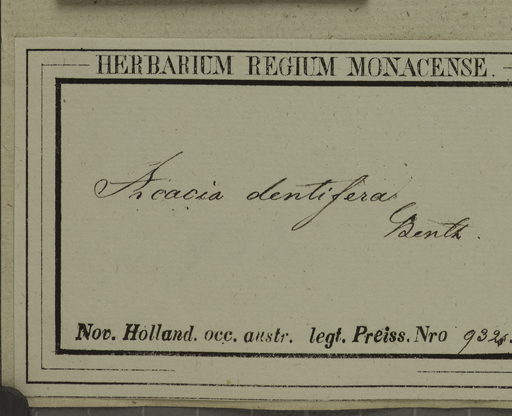 HERBARIUM REGIUM MONACENSE.
Acacia dentifera
Benth.
Nov. Holland. occ. austr. legt. Preiss. Nro